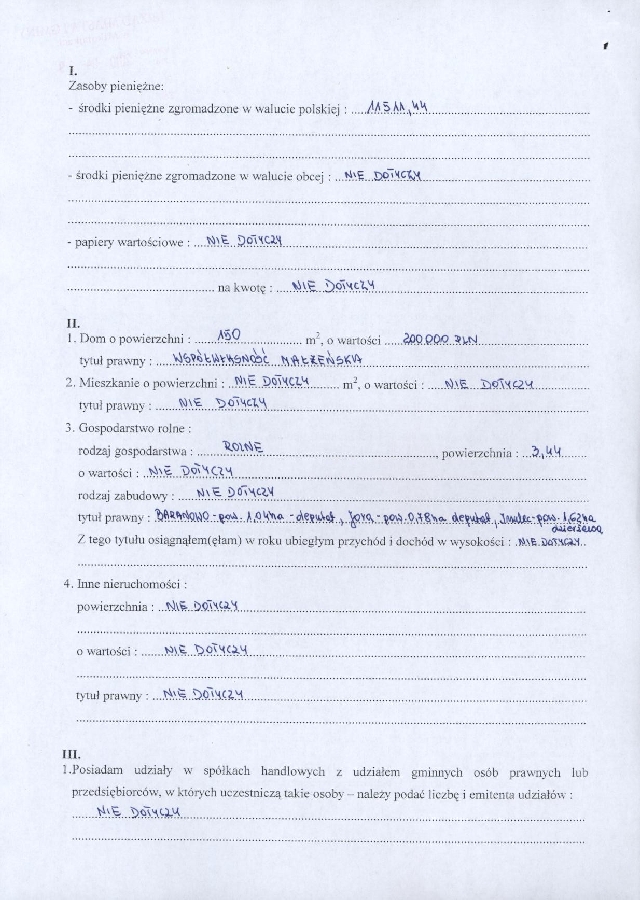 I.
Zasoby pieniężne:
- środki pieniężne zgromadzone w walucie polskiej : 11511,44
- środki pieniężne zgromadzone w walucie obcej : NIE DOTYCZY
- papiery wartościowe : NIE DOTYCZY
na kwotę : NIE DOTYCZY
II.
1. Dom o powierzchni : 150 m², o wartości 200 000 PLN
tytuł prawny : WSPÓŁWŁASNOŚĆ MAŁŻEŃSKA
2. Mieszkanie o powierzchni : NIE DOTYCZY m², o wartości : NIE DOTYCZY
tytuł prawny : NIE DOTYCZY
3. Gospodarstwo rolne :
rodzaj gospodarstwa : ROLNE, powierzchnia : 3,44
o wartości : NIE DOTYCZY
rodzaj zabudowy : NIE DOTYCZY
tytuł prawny : BARANOWO - pow. 1,04ha - deputat, Jora - pow. 0,78ha deputat, pow. 1,62ha
dzierżawa
Z tego tytułu osiągnąłem(ęłam) w roku ubiegłym przychód i dochód w wysokości : NIE DOTYCZY
4. Inne nieruchomości :
powierzchnia : NIE DOTYCZY
o wartości : NIE DOTYCZY
tytuł prawny : NIE DOTYCZY
III.
1.Posiadam udziały w spółkach handlowych z udziałem gminnych osób prawnych lub
przedsiębiorców, w których uczestniczą takie osoby – należy podać liczbę i emitenta udziałów :
NIE DOTYCZY